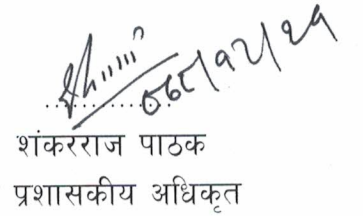 ०६८/१२/२१
शंकरराज पाठक
प्रशासकीय अधिकृत